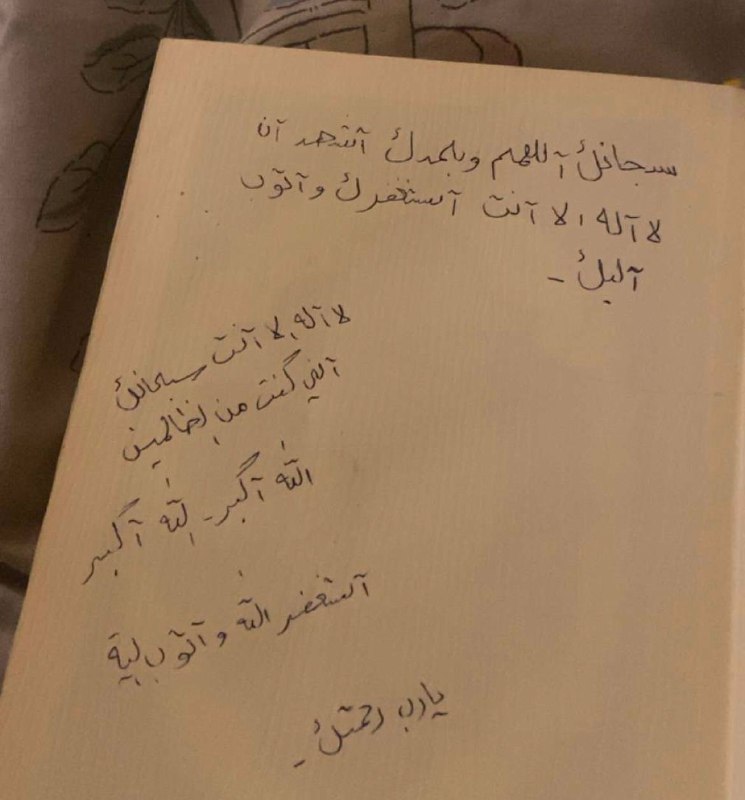 سبحانك آللهم وبحمدك آشهد آن
لا آله الا آنت آستغفرك وآتوب
آليك -
لا آله الا آنت سبحانك
آني كنت من الظالمين
الله آكبر - الله آكبر
آستغفر الله وآتوب الية
يارب رحمتك -